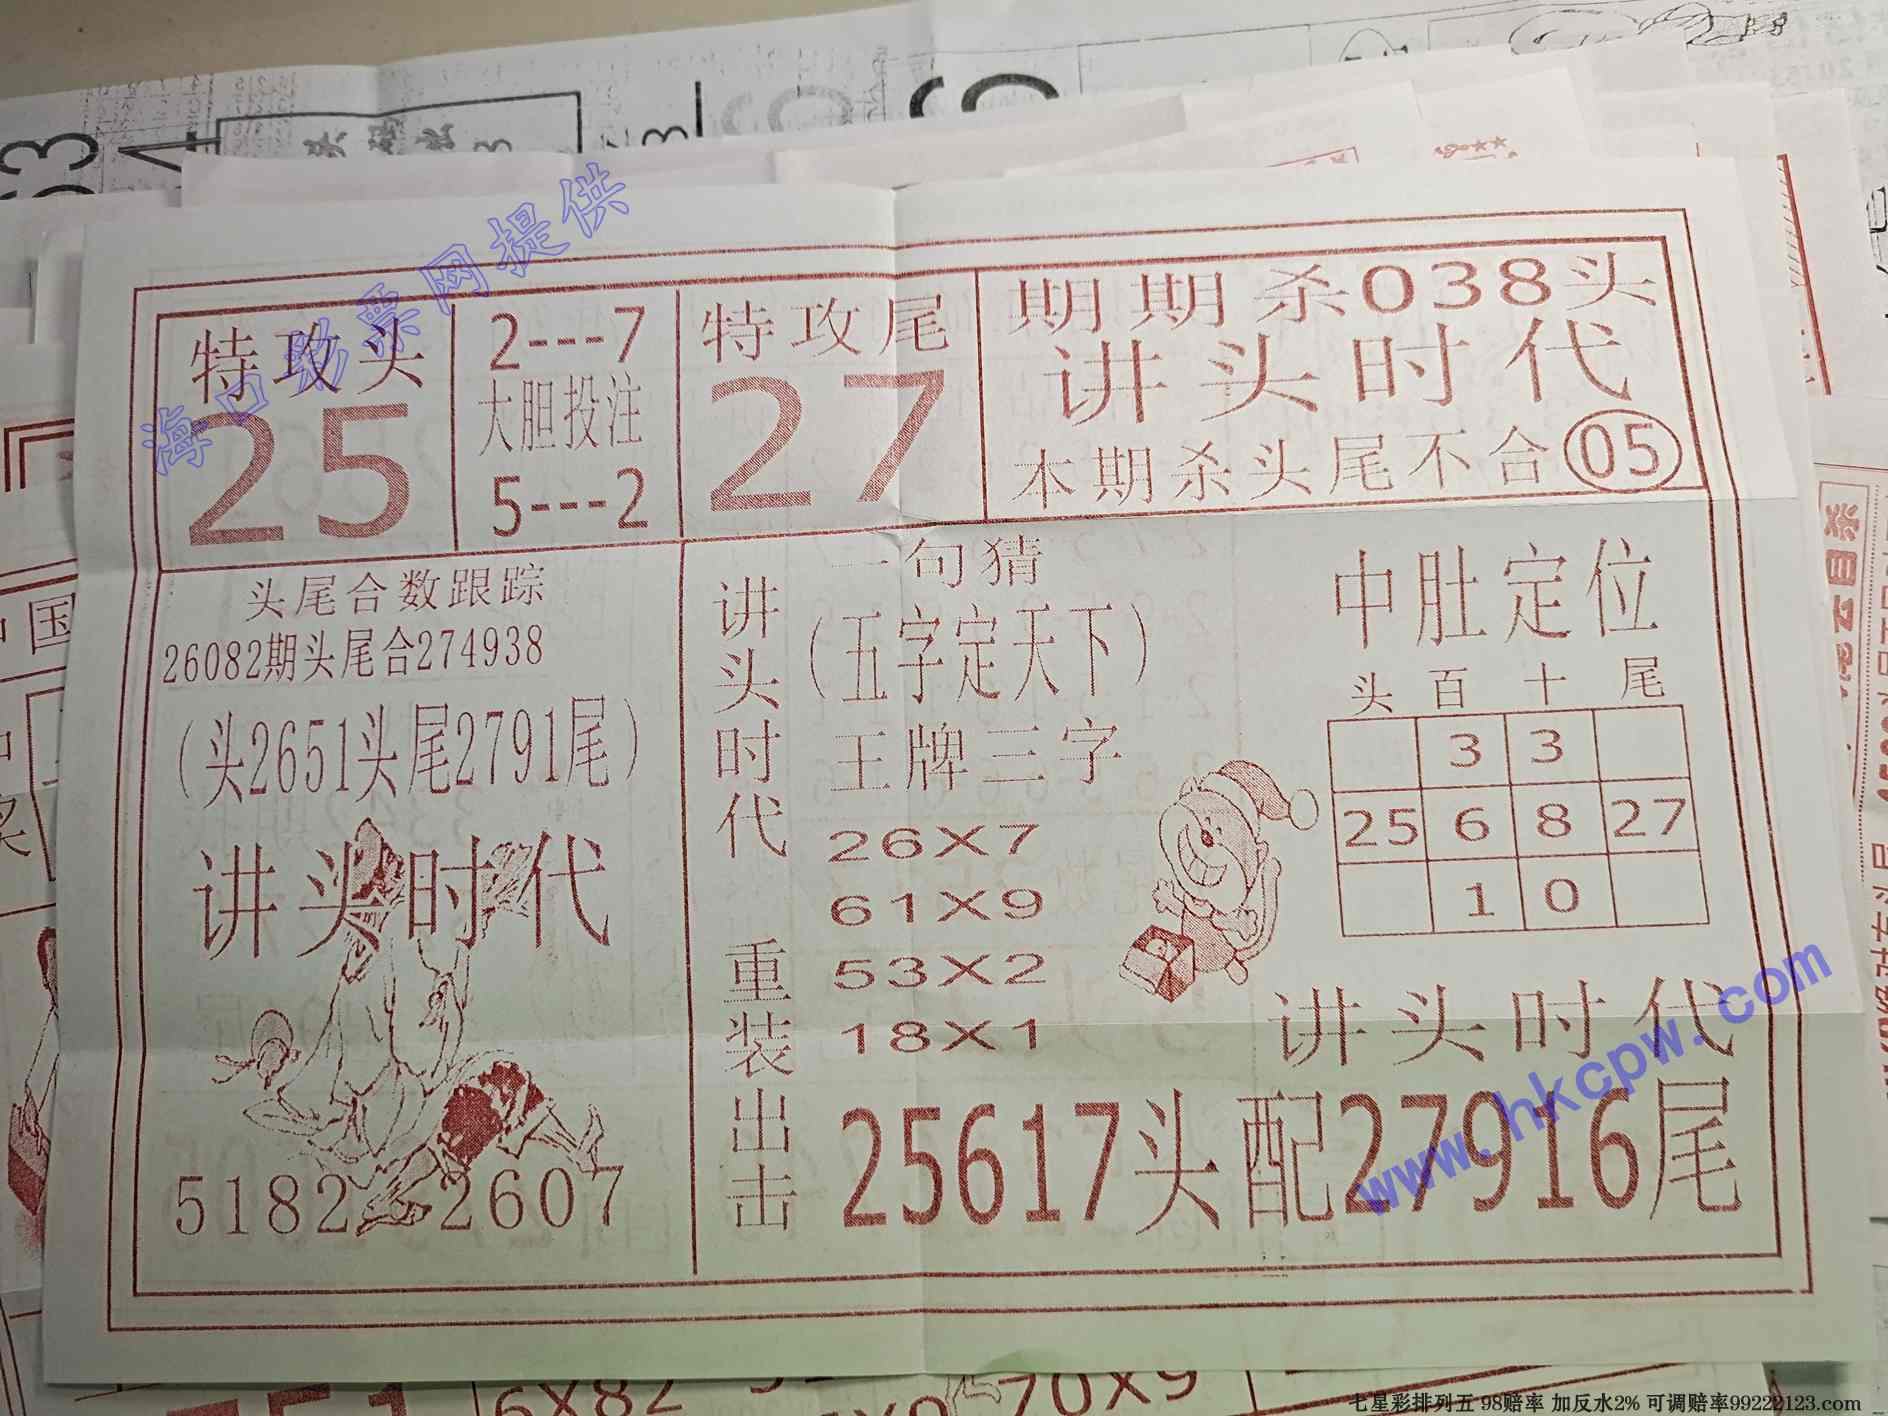 海口彩票网提供
特攻头
25
2---7
大胆投注
5---2
特攻尾
27
期期杀038头
讲头时代
本期杀头尾不合05
头尾合数跟踪
26082期头尾合274938
（头2651头尾2791尾）
讲头时代
5182 2607
讲头时代
重装出击
一句猜
（五字定天下）
王牌三字
26X7
61X9
53X2
18X1
中肚定位
头 百 十 尾
3 3
25 6 8 27
1 0
讲头时代
25617头配27916尾
www.hkcpw.com
6X82
70X9
七星彩排列五 98赔率 加反水2% 可调赔率99222123.com